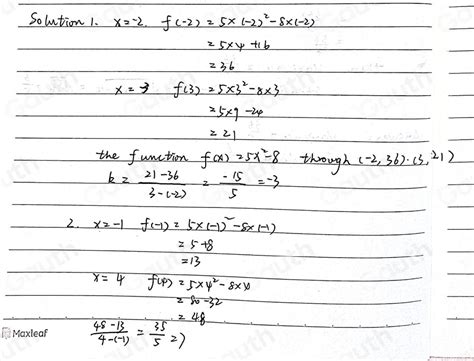 Solution 1. x=-2. f(-2) = 5×(-2)²-8×(-2)
= 5×4+16
= 36
x=3 f(3) = 5×3²-8×3
= 5×9-24
= 21
the function f(x)=5x²-8 through (-2,36).(3,21)
k = \frac{21-36}{3-(-2)} = \frac{-15}{5} = -3
2. x=-1 f(-1) = 5×(-1)²-8×(-1)
= 5+8
= 13
x=4 f(4) = 5×4²-8×4
= 80-32
= 48
\frac{48-13}{4-(-1)} = \frac{35}{5} = 7
Maxleaf
Gauth